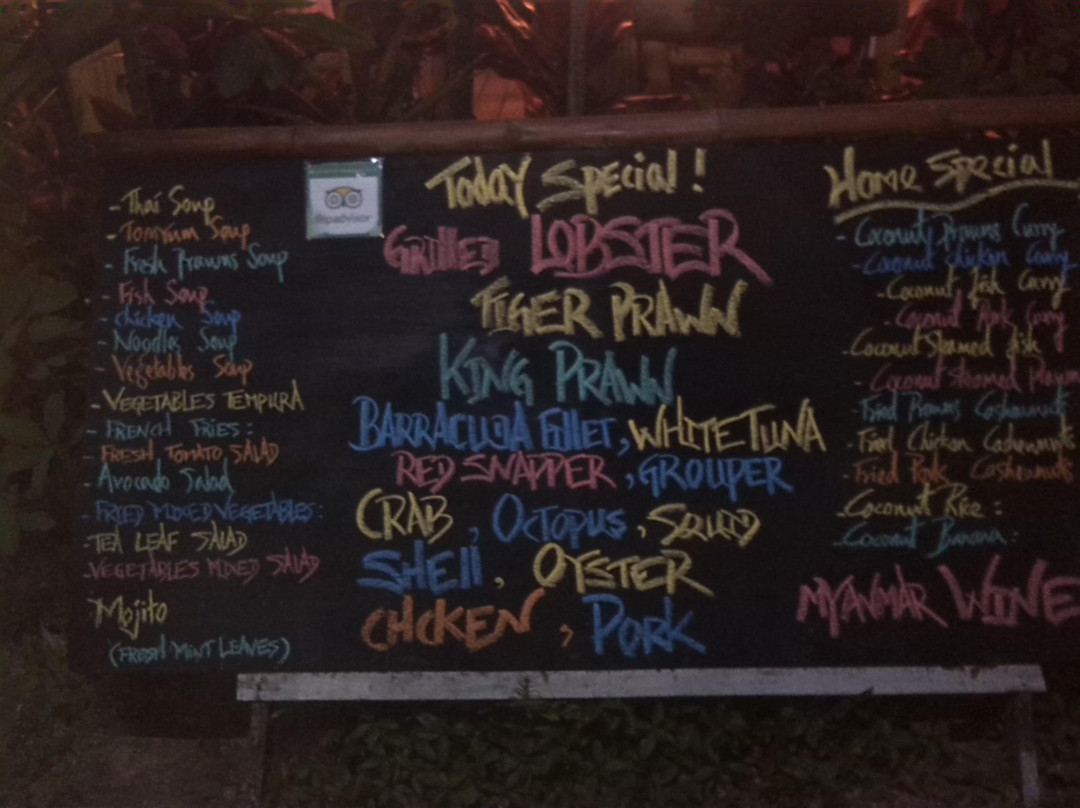 - Thai Soup
- Tomyum Soup
- Fresh Prawns Soup
- Fish Soup
- Chicken Soup
- Noodles Soup
- Vegetables Soup
- VEGETABLES TEMPURA
- FRENCH FRIES:
- FRESH TOMATO SALAD
- Avocado Salad
- FRIED MIXED VEGETABLES:
- TEA LEAF SALAD
- VEGETABLES MIXED SALAD
Mojito
(FRESH MINT LEAVES)
tripadvisor
Today Special!
Grilled LOBSTER
TIGER PRAWN
KING PRAWN
BARRACUDA FillET, WHITE TUNA
RED SNAPPER, GROUPER
CRAB, OCTOPUS, SQUID
SHEll, OYSTER
CHCKEN, PORK
Home Special
- Coconuts Prawns Curry
- Coconut Chicken Curry
- Coconut fish Curry
- Coconut Pork Curry
- Coconut Steamed fish
- Coconut Steamed
- Fried Prawns Cashewnuts
- Fried Chicken Cashewnuts
- Fried Pork Cashewnuts
- Coconut Rice:
- Coconut Banana:
MYANMAR WINE